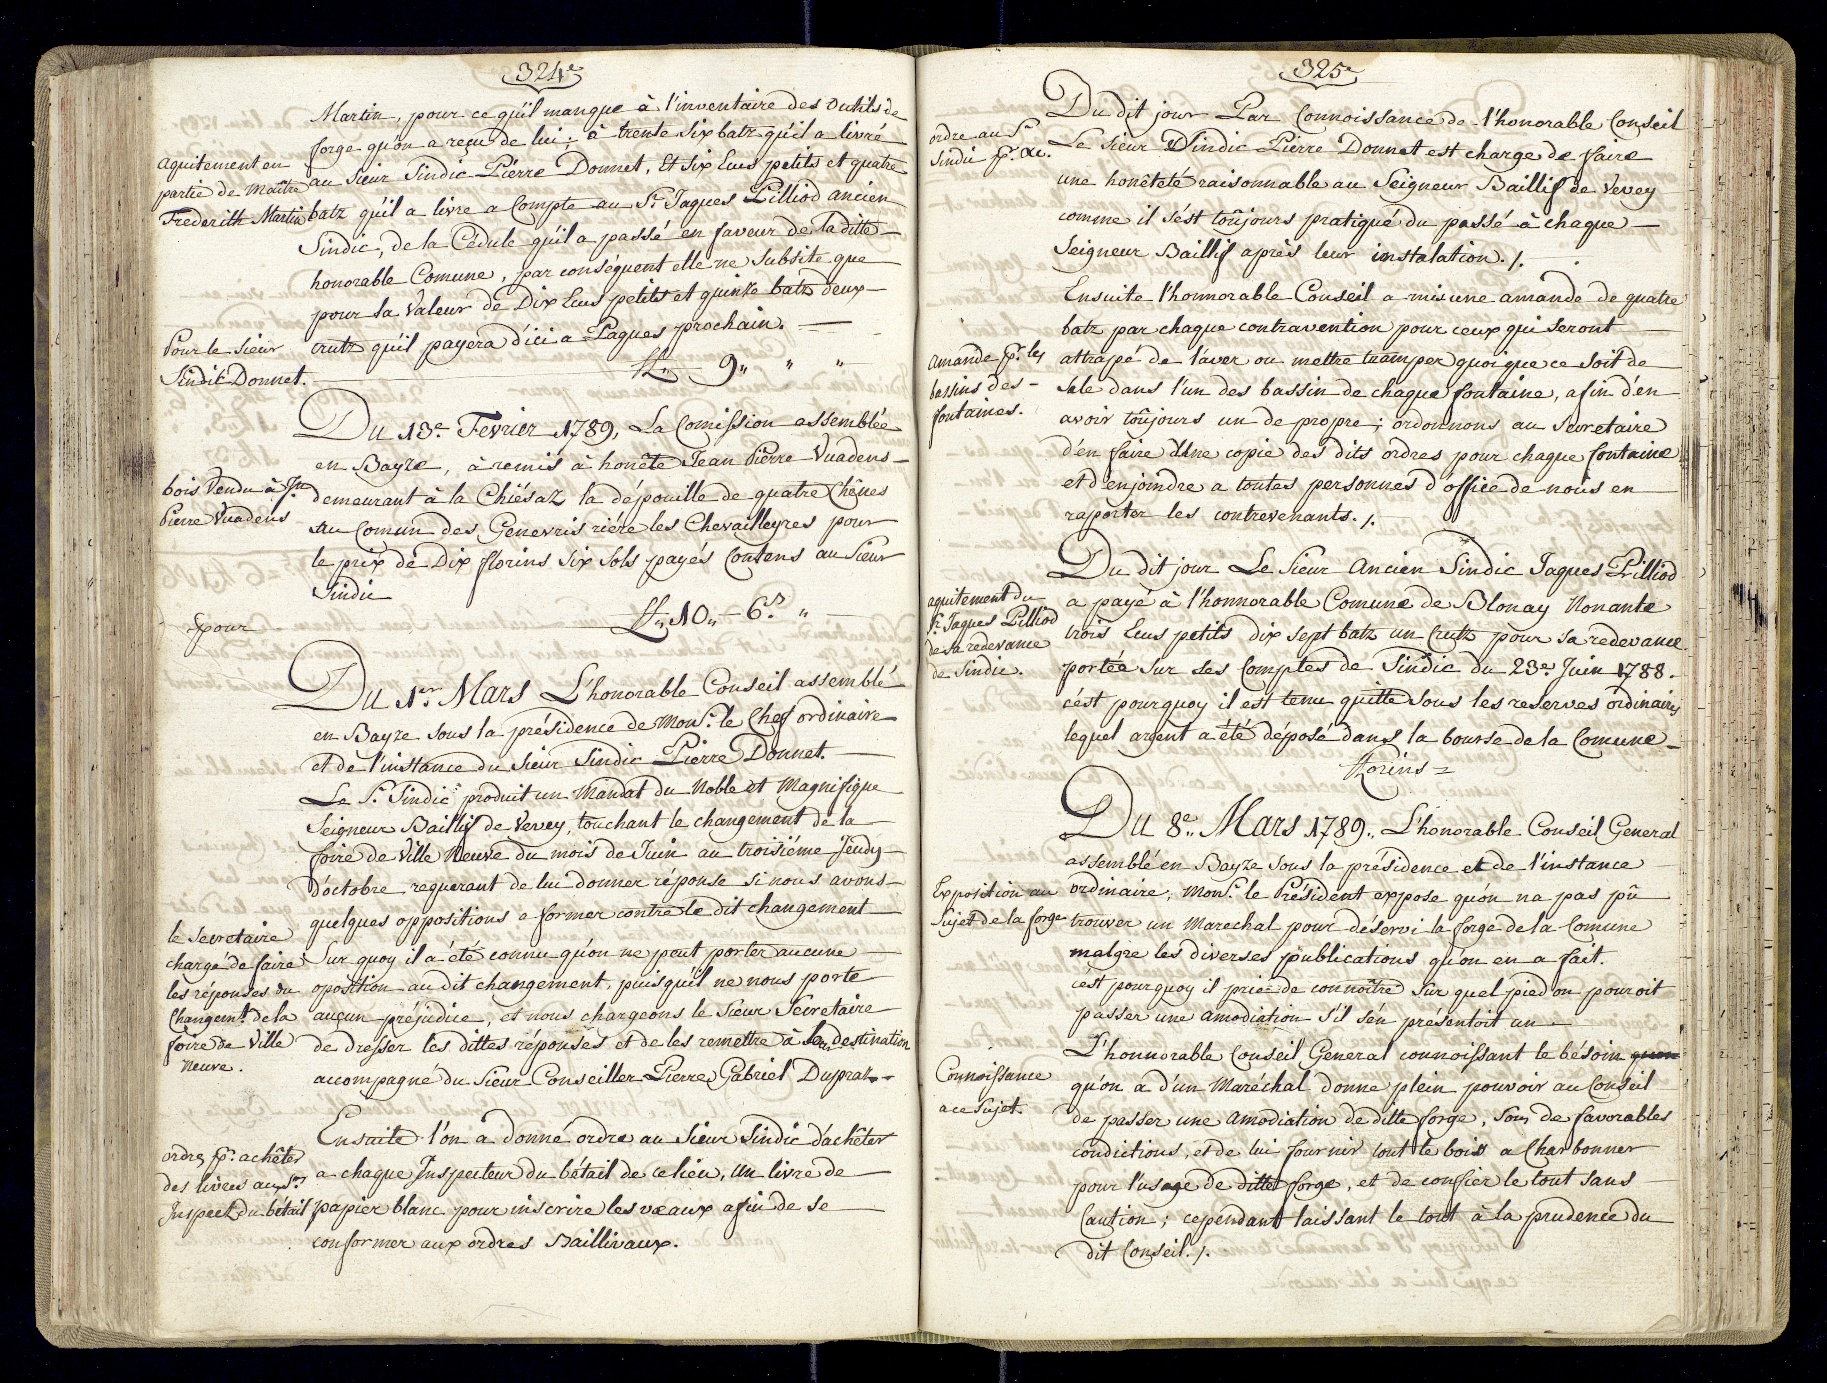 324e
Martin, pour ce qu'il manque à l'inventaire des outils de
forge qu'on a reçu de lui; à trente six batz qu'il a livré
Aquitement en
partie de Maître
Frederith Martin
au Sieur Sindic Pierre Donnet, Et six Ecus petits et quatre
batz qu'il a livré a Compte au Sr. Jaques Pilliod ancien
Sindic, de la Cédule qu'il a passé en faveur de Laditte
honorable Comune, par conséquent elle ne subsite que
pour la Valeur de Dix Ecus petits et quinze batz deux
crutz qu'il payera d'ici a Paques prochain.
Pour le Sieur
Sindic Donnet.
ff. 9 " "
Du 13e. Fevrier 1789, La Comission assemblée
en Bayze, à remis à honête Jean Pierre Vuadens
bois Vendu à Jn.
Pierre Vuadens
demeurant à la Chiésaz la dépouille de quatre Chênes
Au Comun des Genevris riére les Chevalleyres pour
le prix de Dix florins six sols payés Contens au Sieur
Sindic
ff. 10 - 6.s "
pour
Du 1er Mars L'honorable Conseil assemblé
en Bayze sous la présidence de Monsr. le Chef ordinaire
et de l'instance du Sieur Sindic Pierre Donnet.
Le Sr. Sindic produit un Mandat du Noble et Magnifique
Seigneur Baillif de Vevey, touchant le changement de la
foire de Ville Neuve du mois de Juin au troisiéme Jeudy
d'octobre requerant de lui donner réponse si nous avons
quelques oppositions a former contre le dit changement
le Secretaire
chargé de faire
les réponses du
Changemt. de la
foire de Ville
Neuve.
Sur quoy il a été connu qu'on ne peut porter aucune
oposition audit changement, puis qu'il ne nous porte
aucun préjudice, et nous chargeons le Sieur Secretaire
de dresser les dittes réponses et de les remettre à leur destination
accompagné du Sieur Conseiller Pierre Gabriel Dupraz.
Ensuite l'on a donné ordre au Sieur Sindic d'achêter
ordre pr. achêter
des livres aux Srs
Inspect. du bétail
a chaque Inspecteur du bétail de ce lieu, un livre de
papier blanc pour inscrire les veaux afin de se
conformer aux ordres Baillivaux.
325e
Du dit jour Par Connoissance de l'honorable Conseil
ordre au Sr.
Sindic pr. &c.
Le Sieur Sindic Pierre Donnet est chargé de faire
une honêteté raisonnable au Seigneur Baillif de Vevey
comme il s'est toûjours pratiqué du passé à chaque
Seigneur Baillif après leur instalation. /.
Ensuite l'honnorable Conseil a mis une amande de quatre
batz par chaque contravention pour ceux qui seront
Amande pr. les
bassins des
fontaines.
attrapé de laver ou mettre tramper quoi que ce soit de
sale dans l'un des bassin de chaque fontaine, afin d'en
avoir toûjours un de propre; ordonnons au Secretaire
d'en faire Une copie des dits ordres pour chaque fontaine
et d'enjoindre a toutes personnes d'office de nous en
raporter les contrevenants. /.
Du dit jour Le Sieur Ancien Sindic Jaques Pilliod
aquitement du
Sr. Jaques Pilliod
de sa redevance
de Sindic.
a payé à l'honnorable Comune de Blonay Nonante
trois Ecus petits dix sept batz un Crutz pour sa redevance
portée sur ses Comptes de Sindic du 23e. Juin 1788.
c'est pourquoy il est tenu quitte sous les reserves ordinaires
lequel argent a été déposé dans la bourse de la Comune
florins =
Du 8e. Mars 1789., L'honorable Conseil General
assemblé en Bayze sous la présidence et de l'instance
Exposition au
Sujet de la forge
ordinaire; Monsr. le Président expose qu'on na pas pû
trouver un Marechal pour désservi la forge de la Comune
malgre les diverses publications qu'on en a fait.
c'est pourquoy il prie de connoître sur quel pied on pouroit
passer une amodiation s'il s'en présentoit un
L'honnorable Conseil General connoissant le bésoin quon
Connoissance
a ce Sujet.
qu'on a d'un Maréchal donne plein pouvoir au Conseil
de passer une amodiation de ditte forge, sous de favorables
condictions, et de lui fournir tout le bois a Charbonner
pour l'usage de ditte forge, et de confier le tout sans
Caution; cependant laissant le tout à la prudence du
dit Conseil. /.